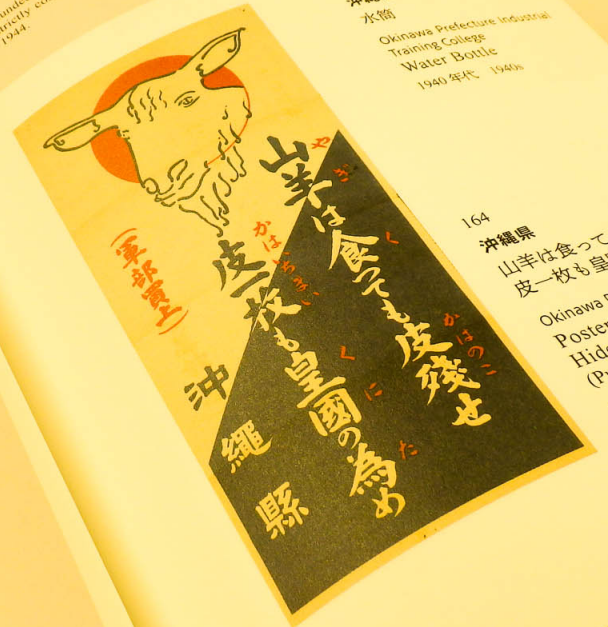 unde
strictly co
1944.
水筒
Okinawa Prefecture Industrial
Training College
Water Bottle
1940年代 1940s
山羊は食っても皮殘せ
やぎ く かはのこ
皮一枚も皇國の為め
かはいちまい くに た
(軍部買上)
沖繩縣
164
沖縄県
山羊は食って
皮一枚も皇
Okinawa
Poster
Hide
(P